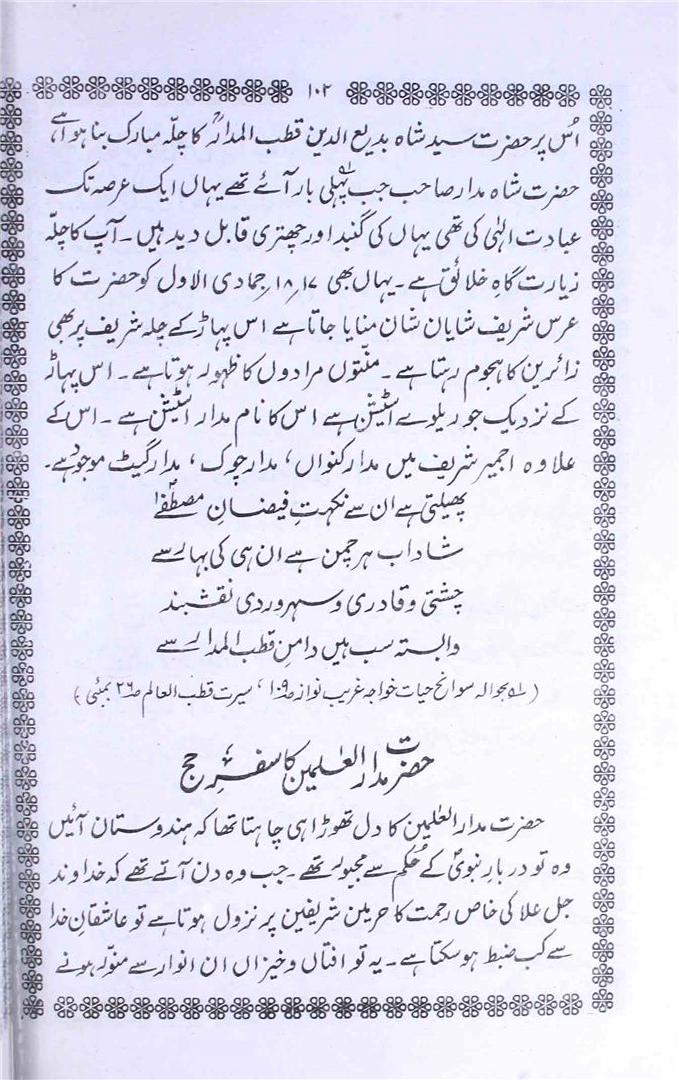 ۱۰۲
اُس پر حضرت سید شاہ بدیع الدین قطب المدارؒ کا چلّہ مبارک بنا ہوا ہے
حضرت شاہ مدار صاحب جب پہلی بار آئے تھے یہاں ایک عرصہ تک
عبادت الہٰی کی تھی یہاں کی گنبد اور چھتری قابل دید ہیں۔ آپ کا چلّہ
زیارت گاہِ خلائق ہے۔ یہاں بھی ۱۷/۱۸/ جمادی الاول کو حضرت کا
عرس شریف شایان شان منایا جاتا ہے اس پہاڑ کے چلہ شریف پر بھی
زائرین کا ہجوم رہتا ہے۔ منّتوں مرادوں کا ظہور ہوتا ہے۔ اس پہاڑ
کے نزدیک جو ریلوے اسٹیشن ہے اس کا نام مدار اسٹیشن ہے۔ اس کے
علاوہ اجمیر شریف میں مدار کنواں، مدار چوک، مدار گیٹ موجود ہے۔
پھیلتی ہے ان سے نکہتِ فیضانِ مصطفےٰؐ
شاداب ہر چمن ہے ان ہی کی بہار سے
چشتی و قادری و سہروردی نقشبند
وابستہ سب ہیں دامنِ قطب المدار سے
(۱؎ بحوالہ سوانح حیات خواجہ غریب نواز صہ۱۰۹، سیرت قطب العالم صہ۲۶ بمبئی)
حضرت مدار العٰلمین کا سفرِ حج
حضرت مدار العٰلمین کا دل تھوڑا ہی چاہتا تھا کہ ہندوستان آئیں
وہ تو دربارِ نبویؐ کے حُکم سے مجبور تھے۔ جب وہ دن آتے تھے کہ خداوند
جل علا کی خاص رحمت کا حرمین شریفین پر نزول ہوتا ہے تو عاشقانِ خدا
سے کب ضبط ہو سکتا ہے۔ یہ تو افتاں و خیزاں ان انوار سے منوّر ہونے